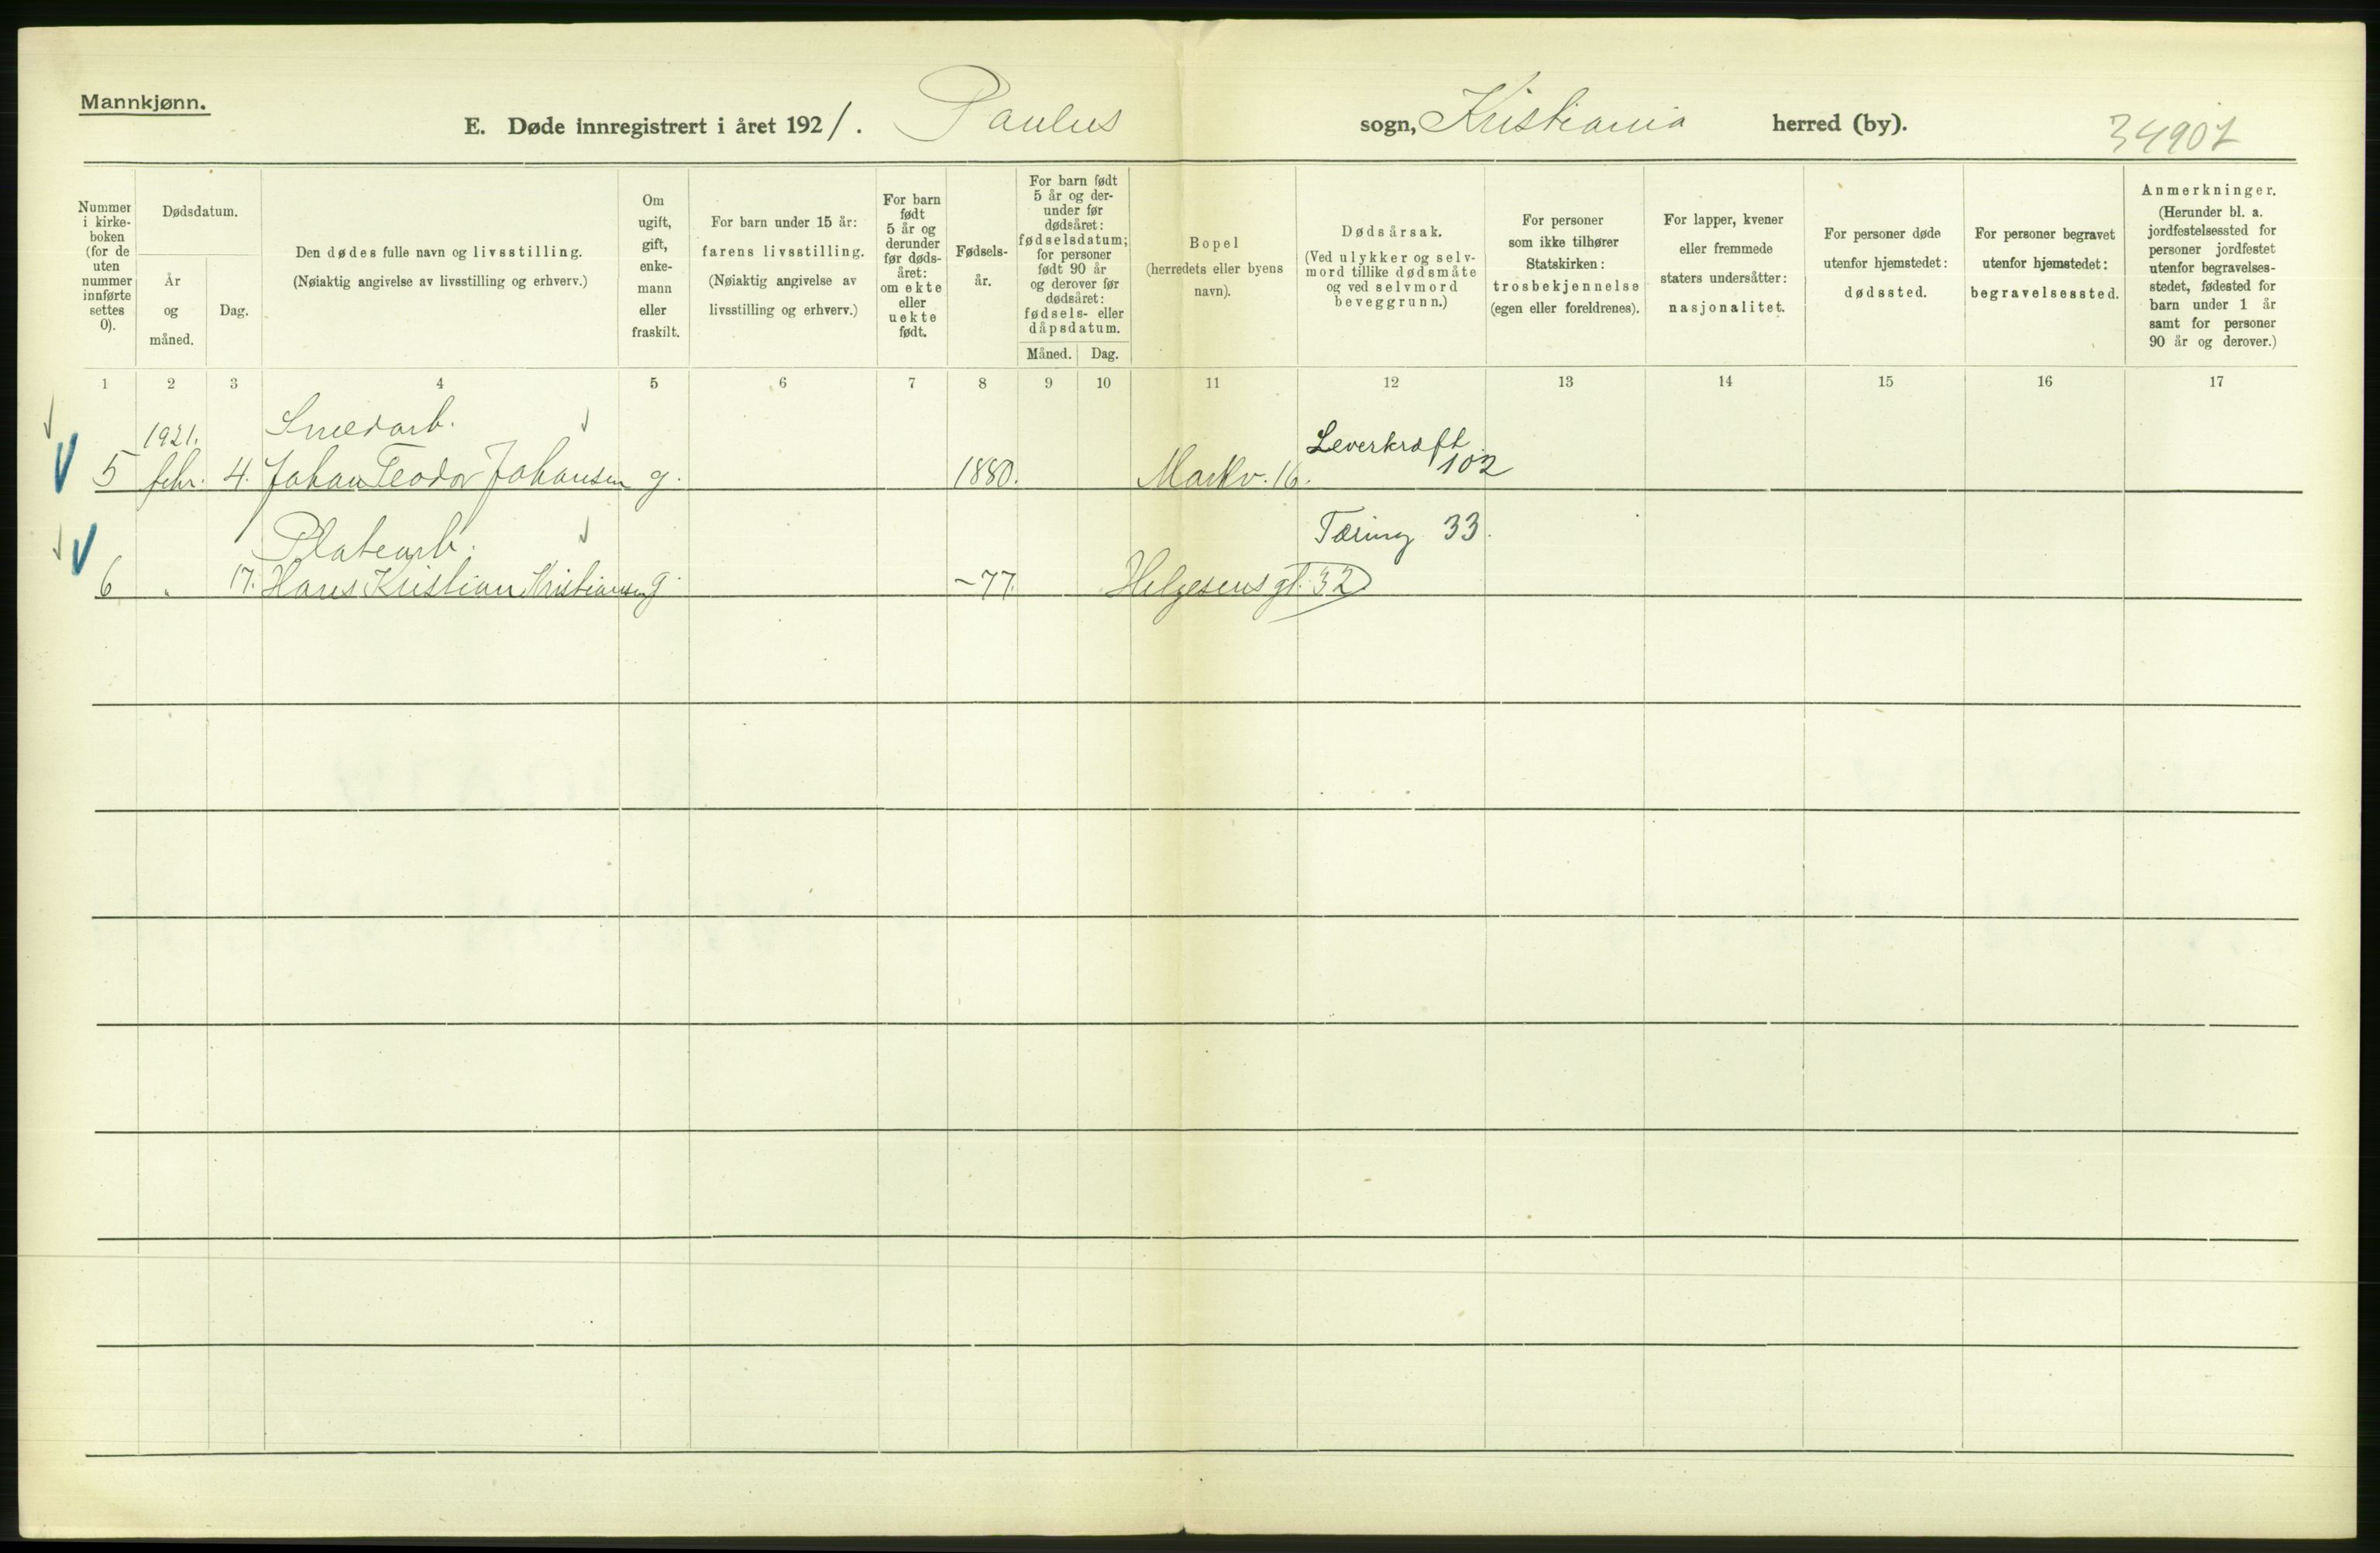 Mannkjønn.
E. Døde innregistrert i året 1921. Paulus sogn, Kristiania herred (by).
34901
Nummer i kirke- boken (for de uten nummer innførte settes 0).
Dødsdatum.
År og måned.
Dag.
Den dødes fulle navn og livsstilling.
(Nøiaktig angivelse av livsstilling og erhverv.)
Om ugift, gift, enke- mann eller fraskilt.
For barn under 15 år:
farens livsstilling.
(Nøiaktig angivelse av livsstilling og erhverv.)
For barn født 5 år og derunder før døds- året: om ekte eller uekte født.
Fødsels- år.
For barn født 5 år og der- under før dødsåret: fødselsdatum; for personer født 90 år og derover før dødsåret: fødsels- eller dåpsdatum.
Måned. Dag.
Bopel
(herredets eller byens navn).
Dødsårsak.
(Ved ulykker og selv- mord tillike dødsmåte og ved selvmord beveggrunn.)
For personer som ikke tilhører Statskirken: trosbekjennelse (egen eller foreldrenes).
For lapper, kvener eller fremmede staters undersåtter: nasjonalitet.
For personer døde utenfor hjemstedet: dødssted.
For personer begravet utenfor hjemstedet: begravelsessted.
Anmerkninger.
(Herunder bl. a. jordfestelsessted for personer jordfestet utenfor begravelses- stedet, fødested for barn under 1 år samt for personer 90 år og derover.)
1 2 3 4 5 6 7 8 9 10 11 12 13 14 15 16 17
1921. Smedarb. Leverkræft
5 febr. 4. Johan Teodor Johansen g. 1880. Markv. 16. 102
Platearb. Tæring 33.
6 " 17. Hans Kristian Kristiansen g. -77. Helgesens gt. 32